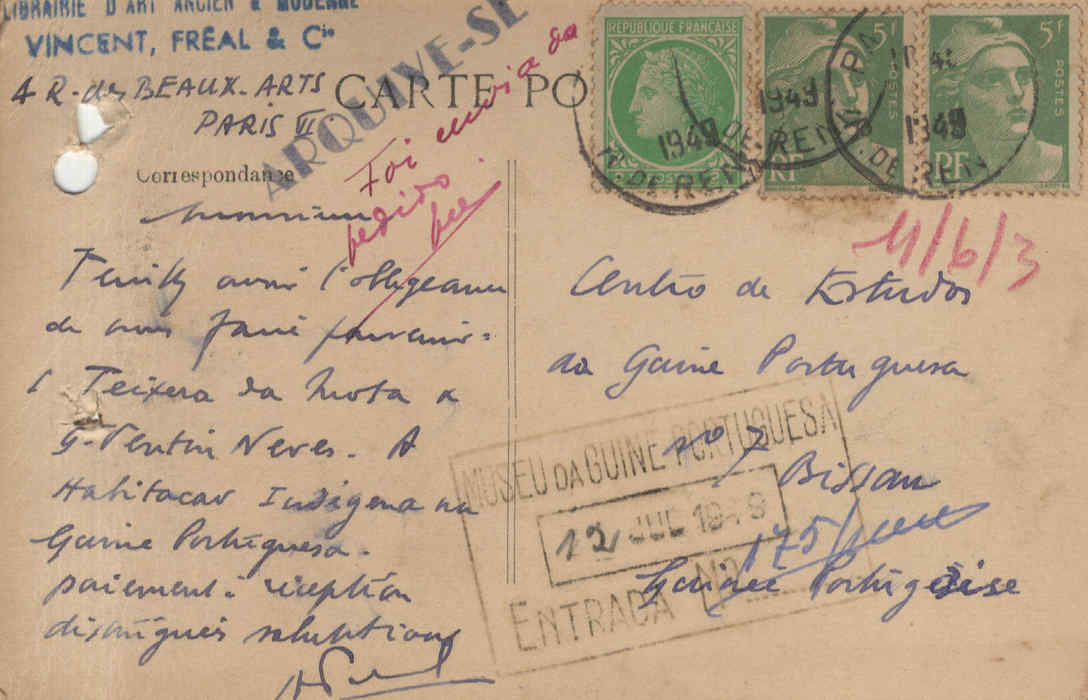 LIBRAIRIE D'ART ANCIEN & MODERNE
VINCENT, FRÉAL & Cie
4 R. des BEAUX-ARTS
PARIS VI
CARTE PO
ARQUIVE-SE
Foi enviado
pedido
Correspondance
Monsieur
Veuillez avoir l'obligeance
de nous faire parvenir :
1 Teixera da Mota &
G. Ventim Neves. A
Habitacao Indigena na
Guine Portuguesa.
paiement à réception
distinguées salutations
RÉPUBLIQUE FRANÇAISE
1949
5F
POSTES
RF
1949
5F
POSTES
RF
1949
11/6/3
Centro de Estudos
da Guine Portuguesa
nº 7
Bissau
Guinée Portugaise
MUSEU DA GUINÉ PORTUGUESA
12 JUL 1949
ENTRADA Nº
175/